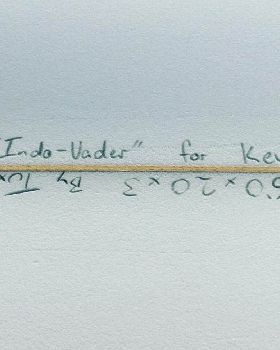 "Indo-Vader" for Kev
x 20 x 3 By